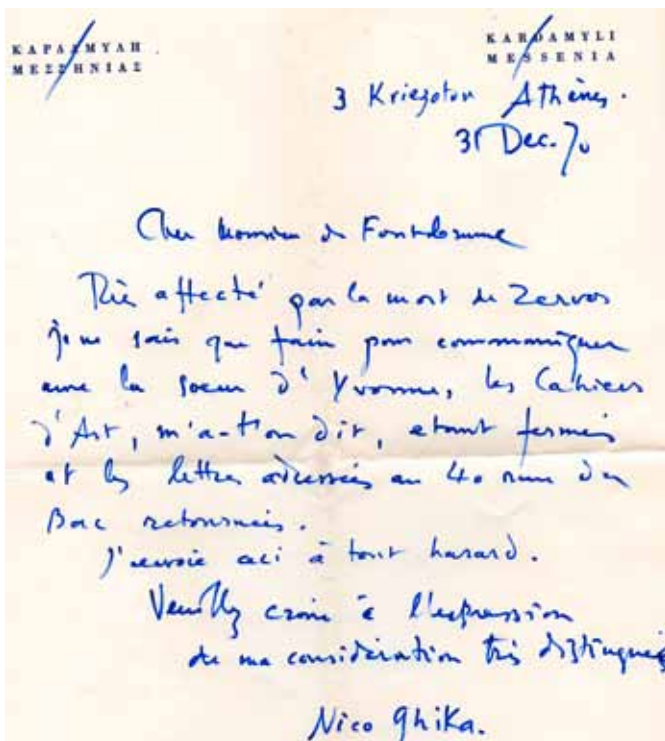 ΚΑΡΔΑΜΥΛΗ
ΜΕΣΣΗΝΙΑΣ
KARDAMYLI
MESSENIA
3 Kriezotou Athènes.
31 Dec. 70
Cher Monsieur de
Très affecté par la mort de Zervos
je ne sais que faire pour communiquer
avec la soeur d'Yvonne, les Cahiers
d'Art, m'a-t'on dit, étant fermés
et les lettres adressées au 40 rue du
Bac retournées.
J'envoie ceci à tout hasard.
Veuillez croire à l'expression
de ma considération très distinguée
Nico Ghika.